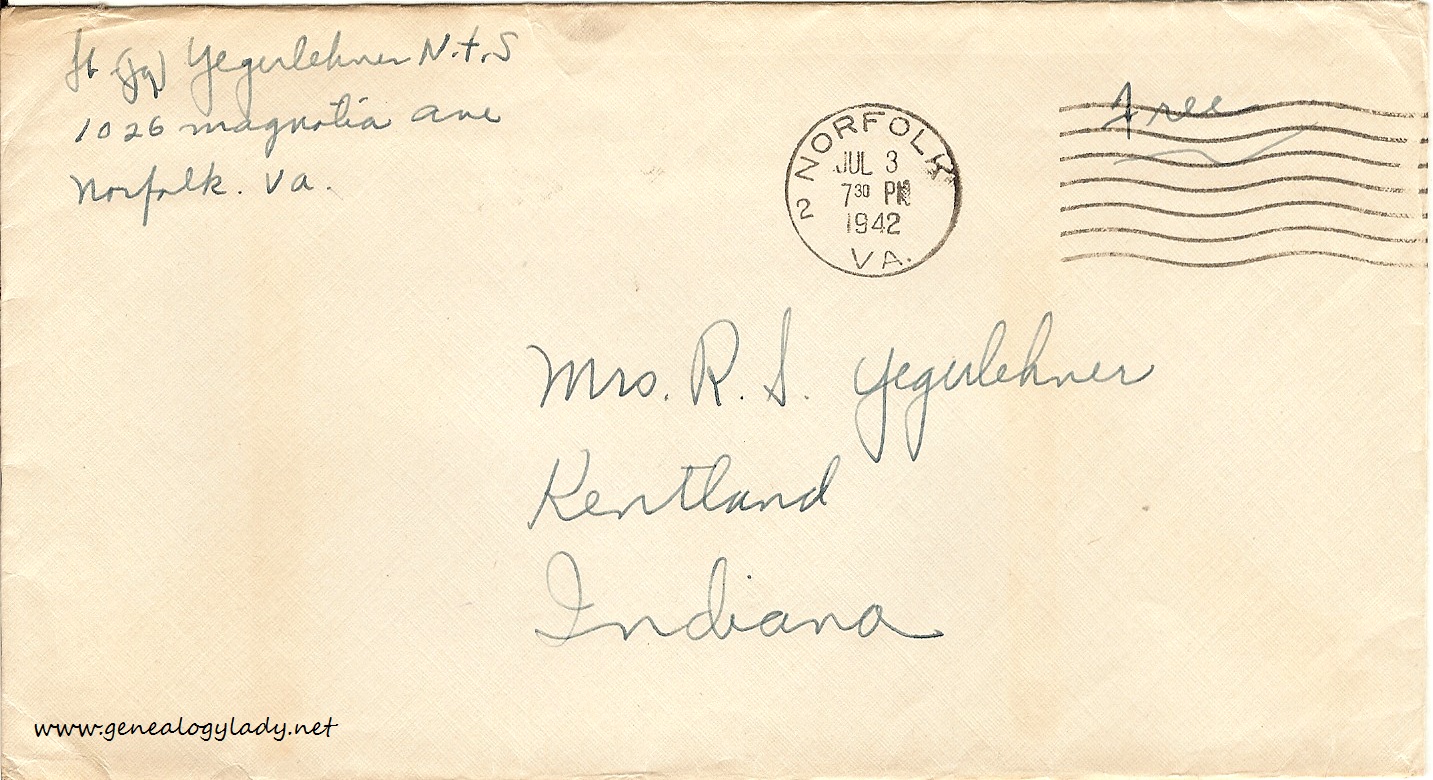 Lt (jg) Yegerlehner N.t.S
1026 magnolia ave
Norfolk. Va.
Free
2 NORFOLK VA.
JUL 3
7³⁰ PM
1942
Mrs. R. S. Yegerlehner
Kentland
Indiana
www.genealogylady.net